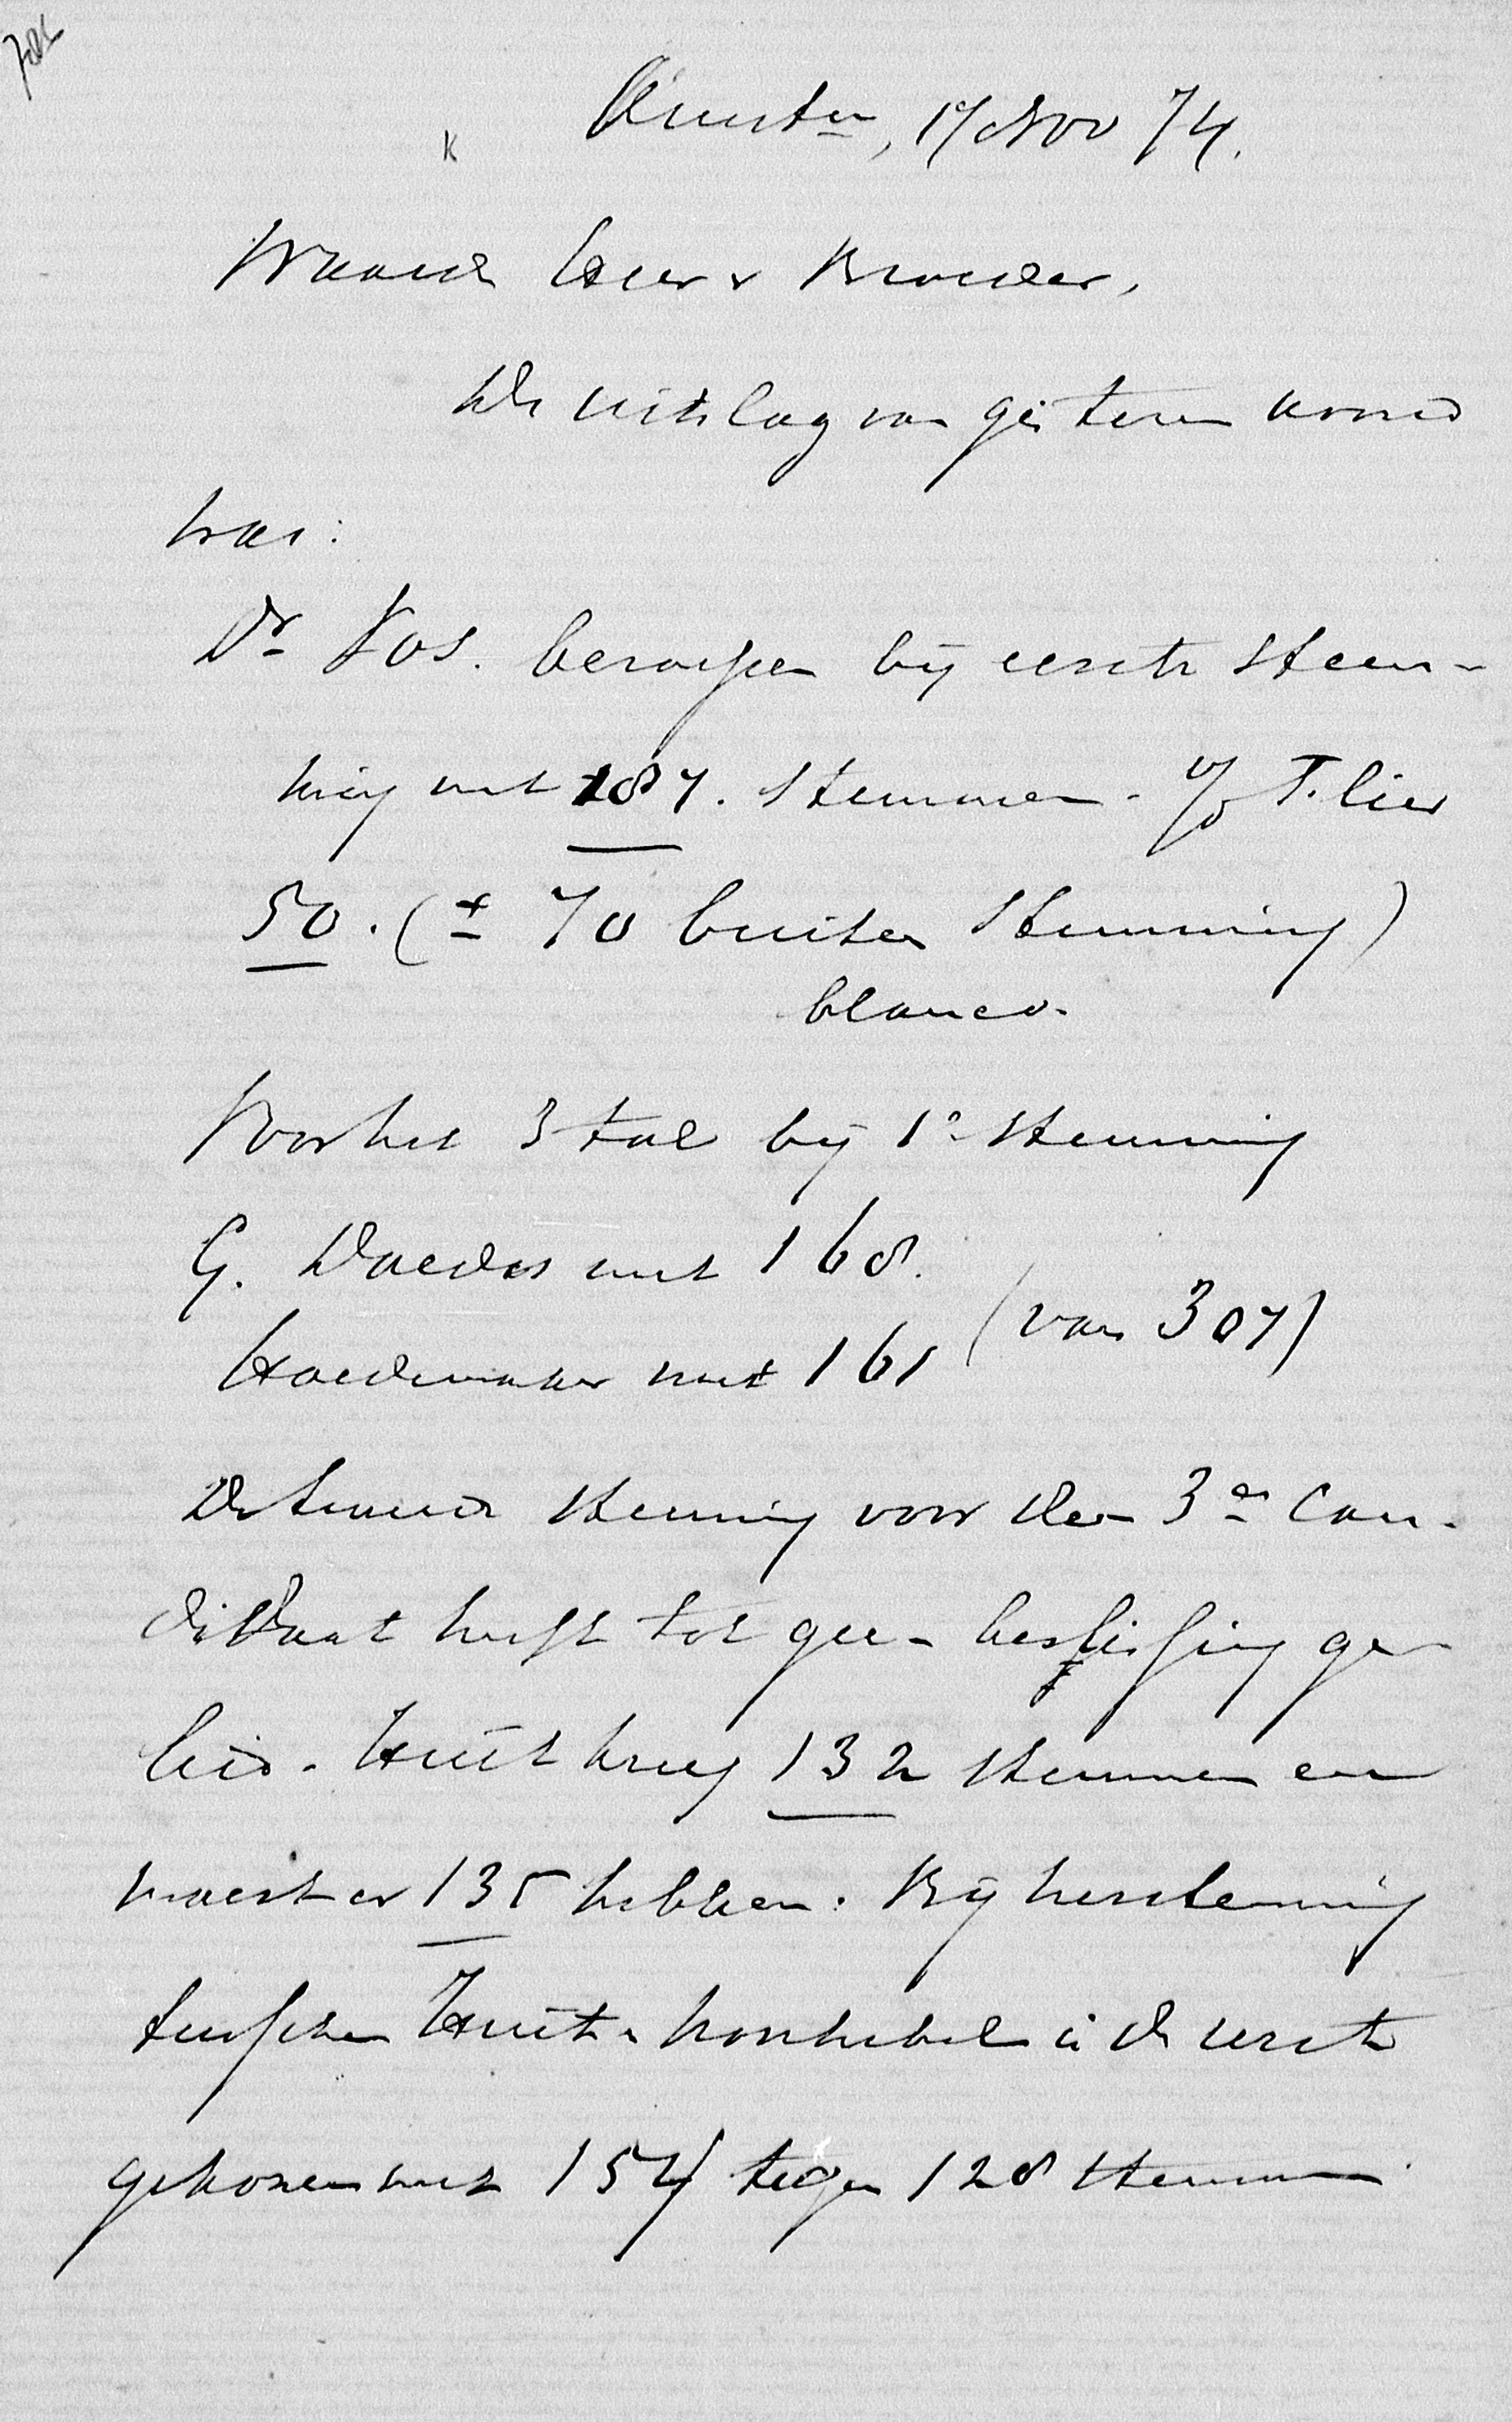 Amstm, 17 Nov 74.
K
Waarde Heer & Broeder,
De uitslag van gisteren avond
was:
Dr Vos. beroepen bij eerste stem-
ming met 187. stemmen. v/d Flier
50. (± 70 buiten stemming)
blanco.
Voor het 3 tal bij 1e stemming
G. Daedes met 168.
(van 307)
Hoedemaker met 161
De tweede stemming voor den 3en Can-
didaat heeft tot geen beslissing ge
leid. Huët kreeg 132 stemmen en
moest er 135 hebben. Bij herstemming
tusschen Huët & is de eerste
gekozen met 154 tegen 128 stemmen